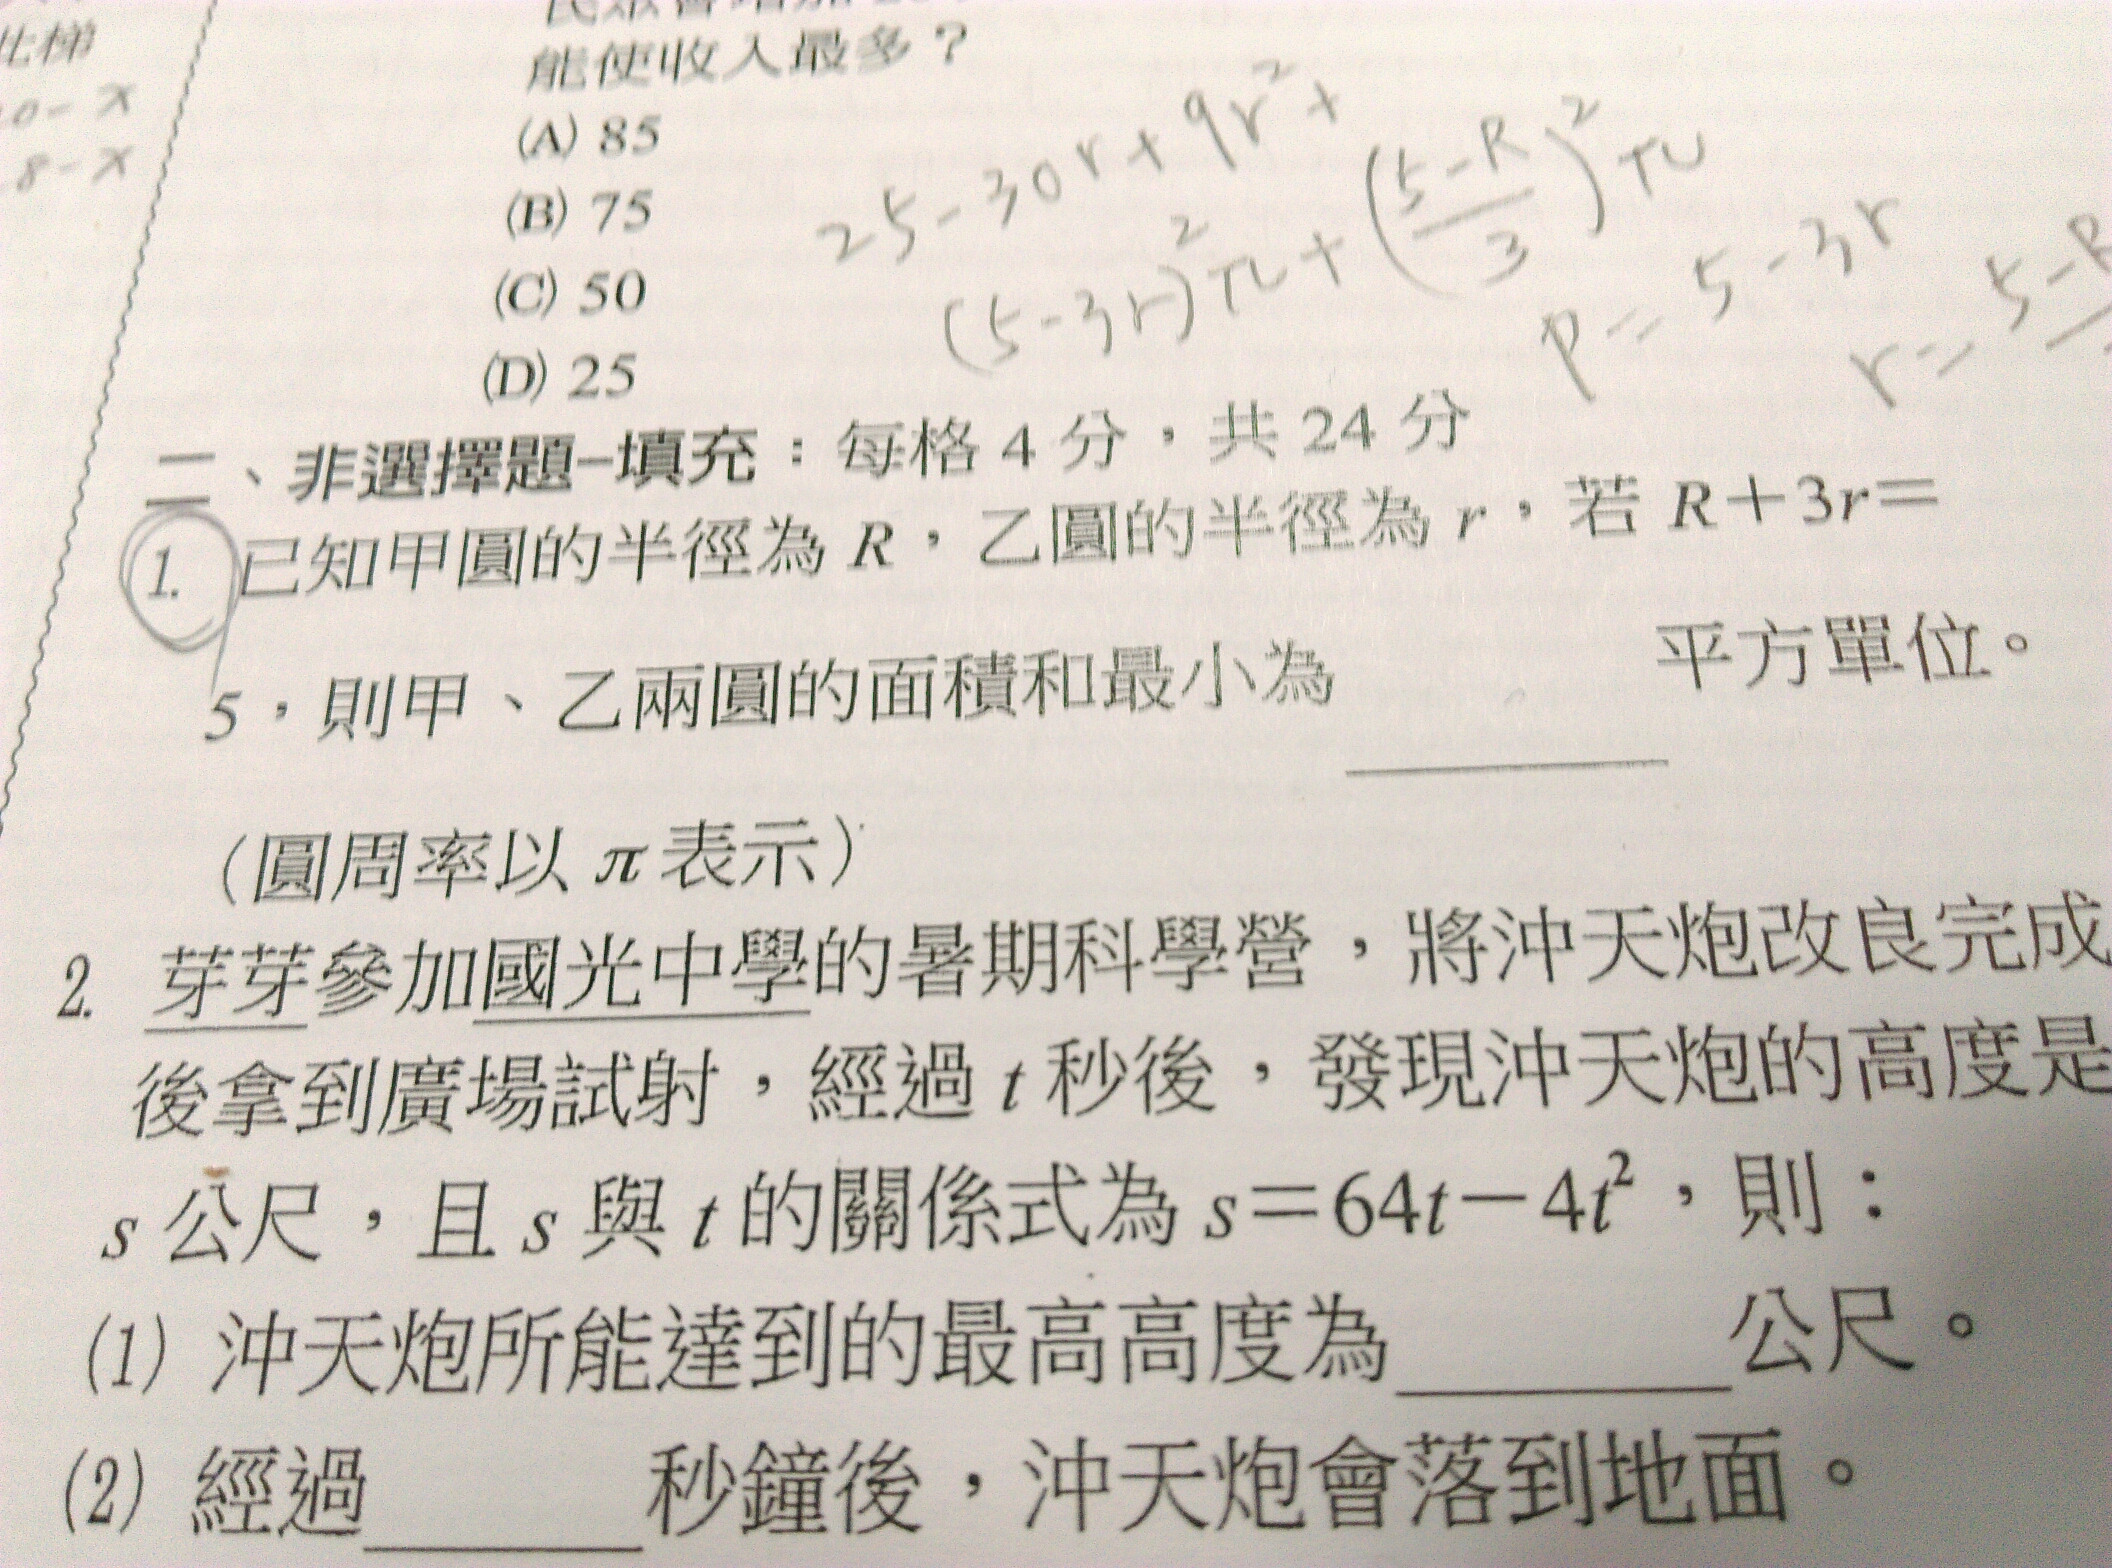 此梯
0-x
8-x
能使收入最多？
(A) 85
(B) 75
(C) 50
(D) 25
25-30r+9r²+
(5-3r)²π+((5-R)/3)²π
R=5-3r
r=5-R
二、非選擇題-填充：每格 4 分，共 24 分
1. 已知甲圓的半徑為 R，乙圓的半徑為 r，若 R＋3r＝
5，則甲、乙兩圓的面積和最小為________平方單位。
（圓周率以 π 表示）
2. 芽芽參加國光中學的暑期科學營，將沖天炮改良完成
後拿到廣場試射，經過 t 秒後，發現沖天炮的高度是
s 公尺，且 s 與 t 的關係式為 s＝64t－4t²，則：
(1) 沖天炮所能達到的最高高度為________公尺。
(2) 經過________秒鐘後，沖天炮會落到地面。